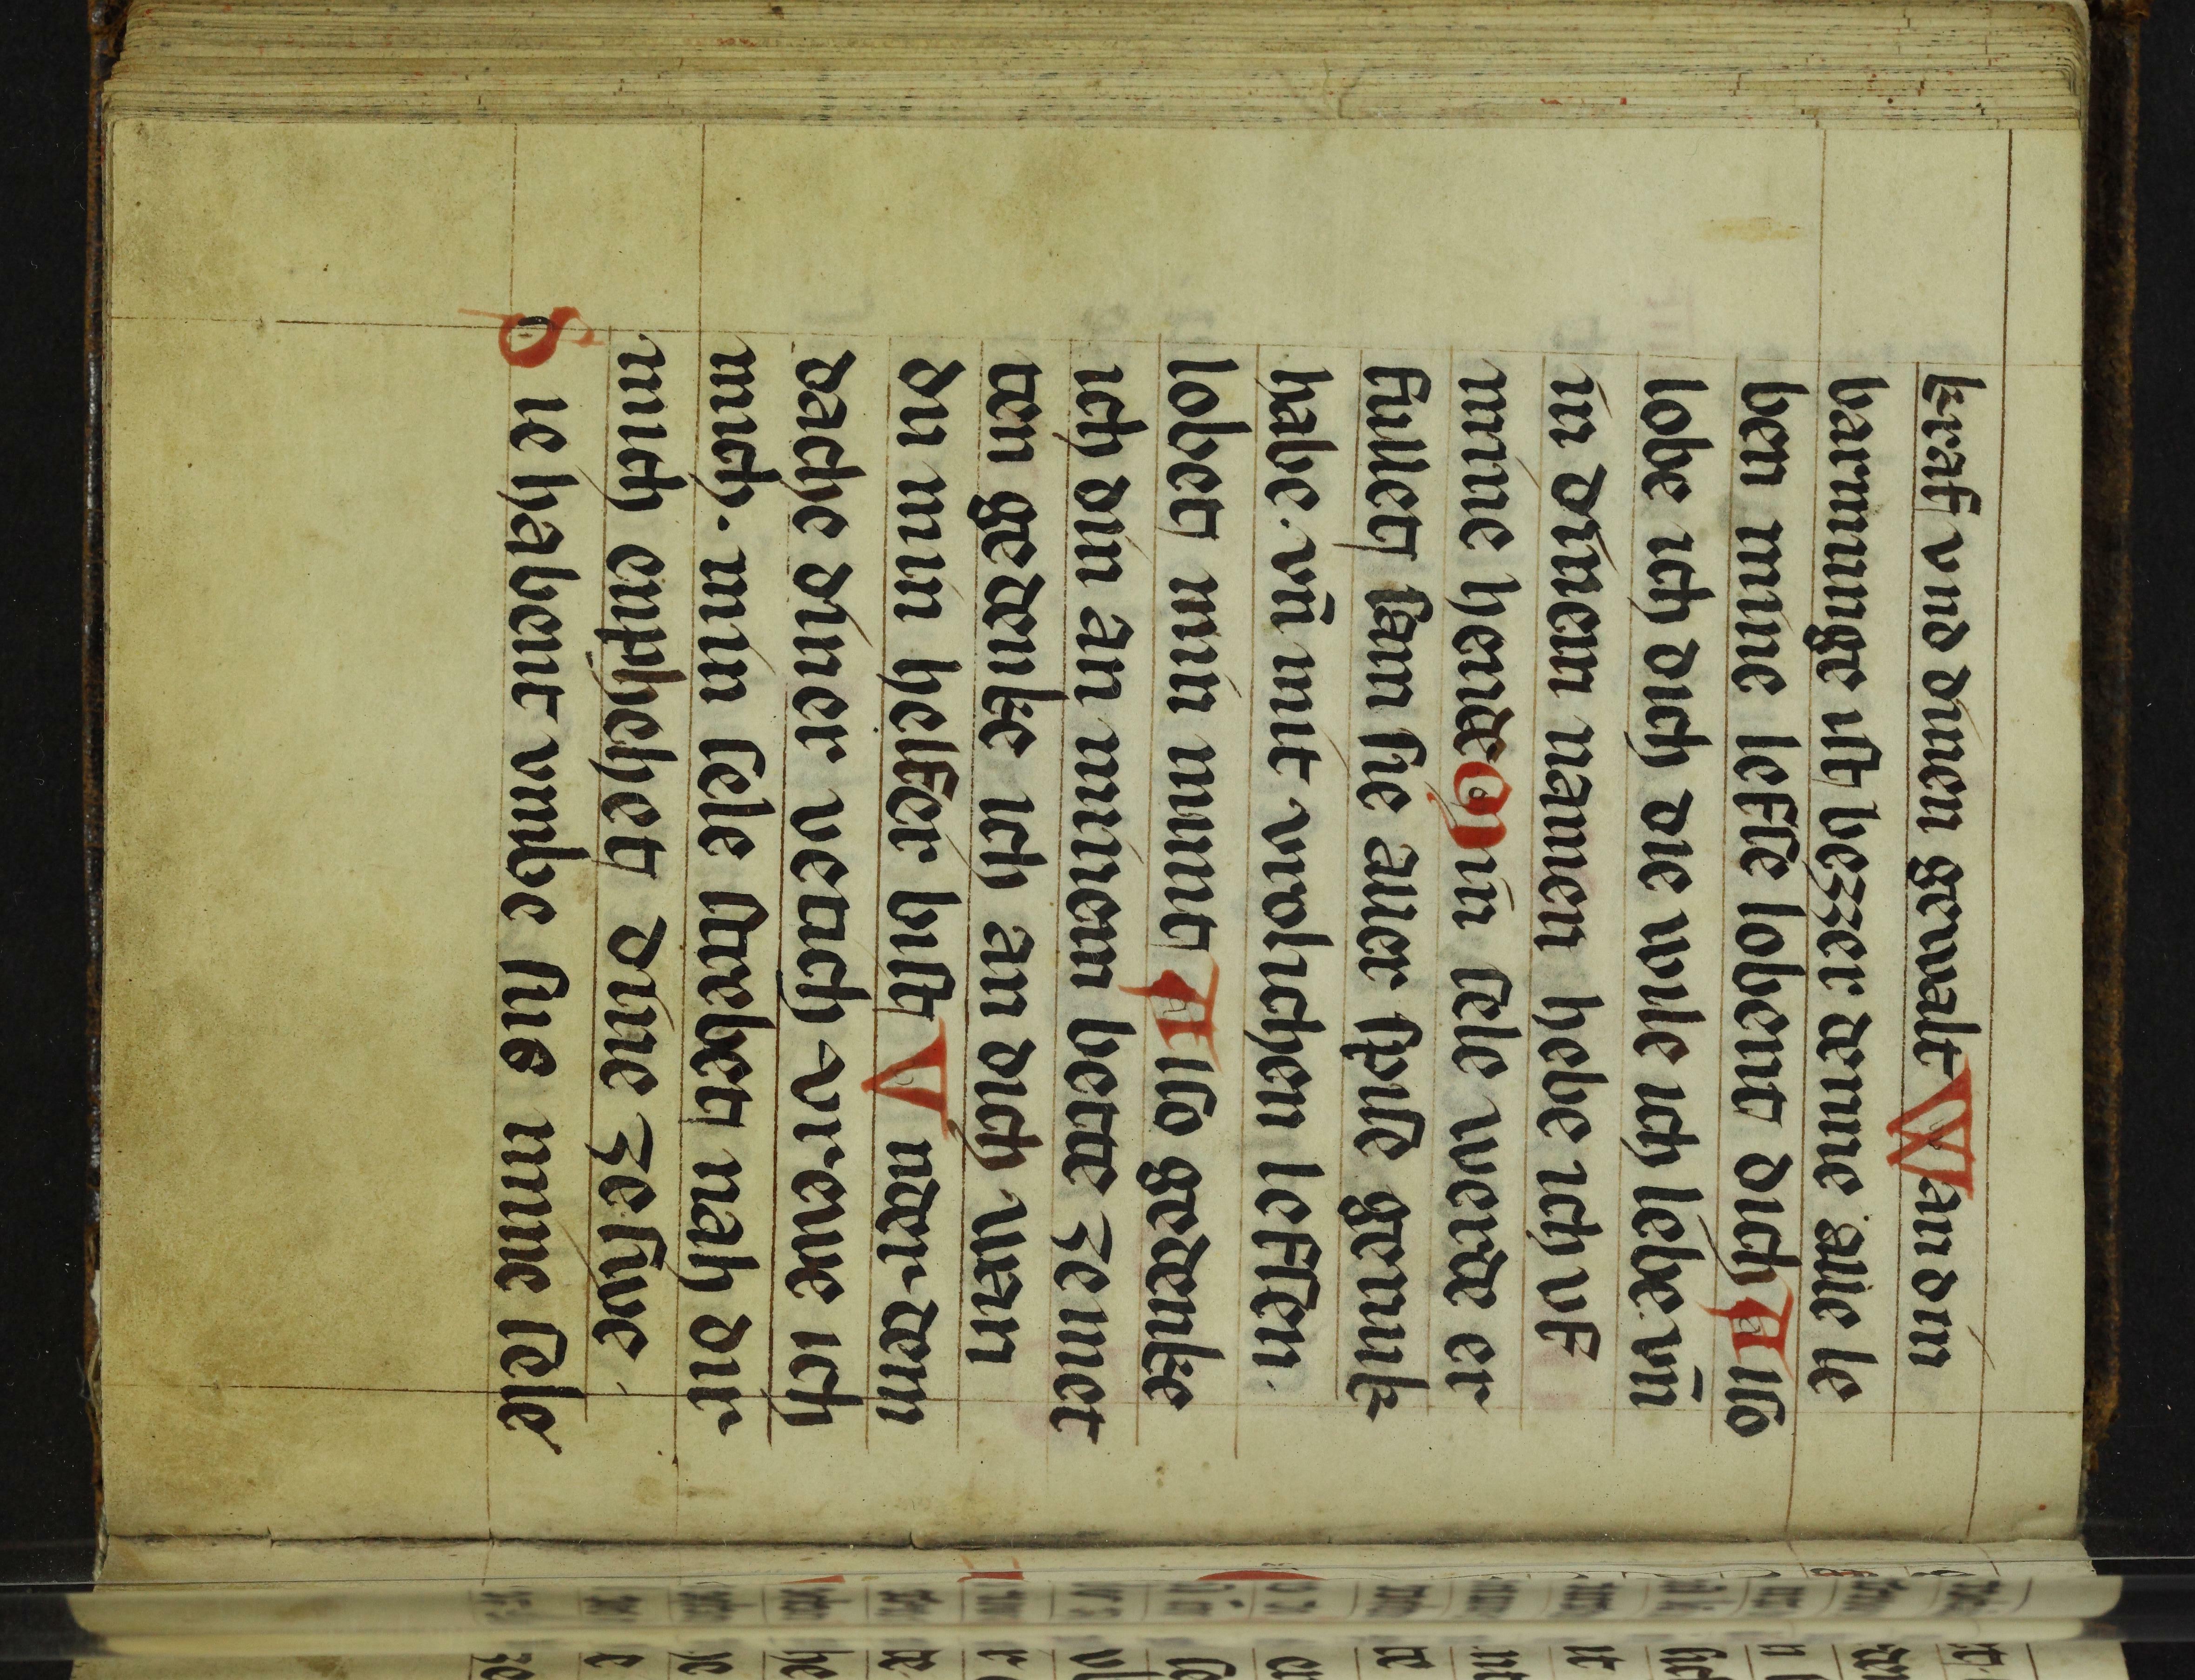 kraft vnd dinen gewalt Wan din
barmunge ist bezzer denne alle le
ben mine leffse lobent dich Also
lobe ich dich die wile ich lebe vn̄
in dinem namen hebe ich vf
mine hende Min sele werde er
fullet sam sie aller spise genuk
habe. vn̄ mit vrolichen leffsen
lobet min munt Also gedenke
ich din an minem bette ze met
ten gedenke ich an dich wan
du min helfer bist Vnder dem
dache diner vetech vrewe ich
mich. min sele strebet nah dir
mich emphehet dine zeswe
Sie habent vmbe sus mine sele